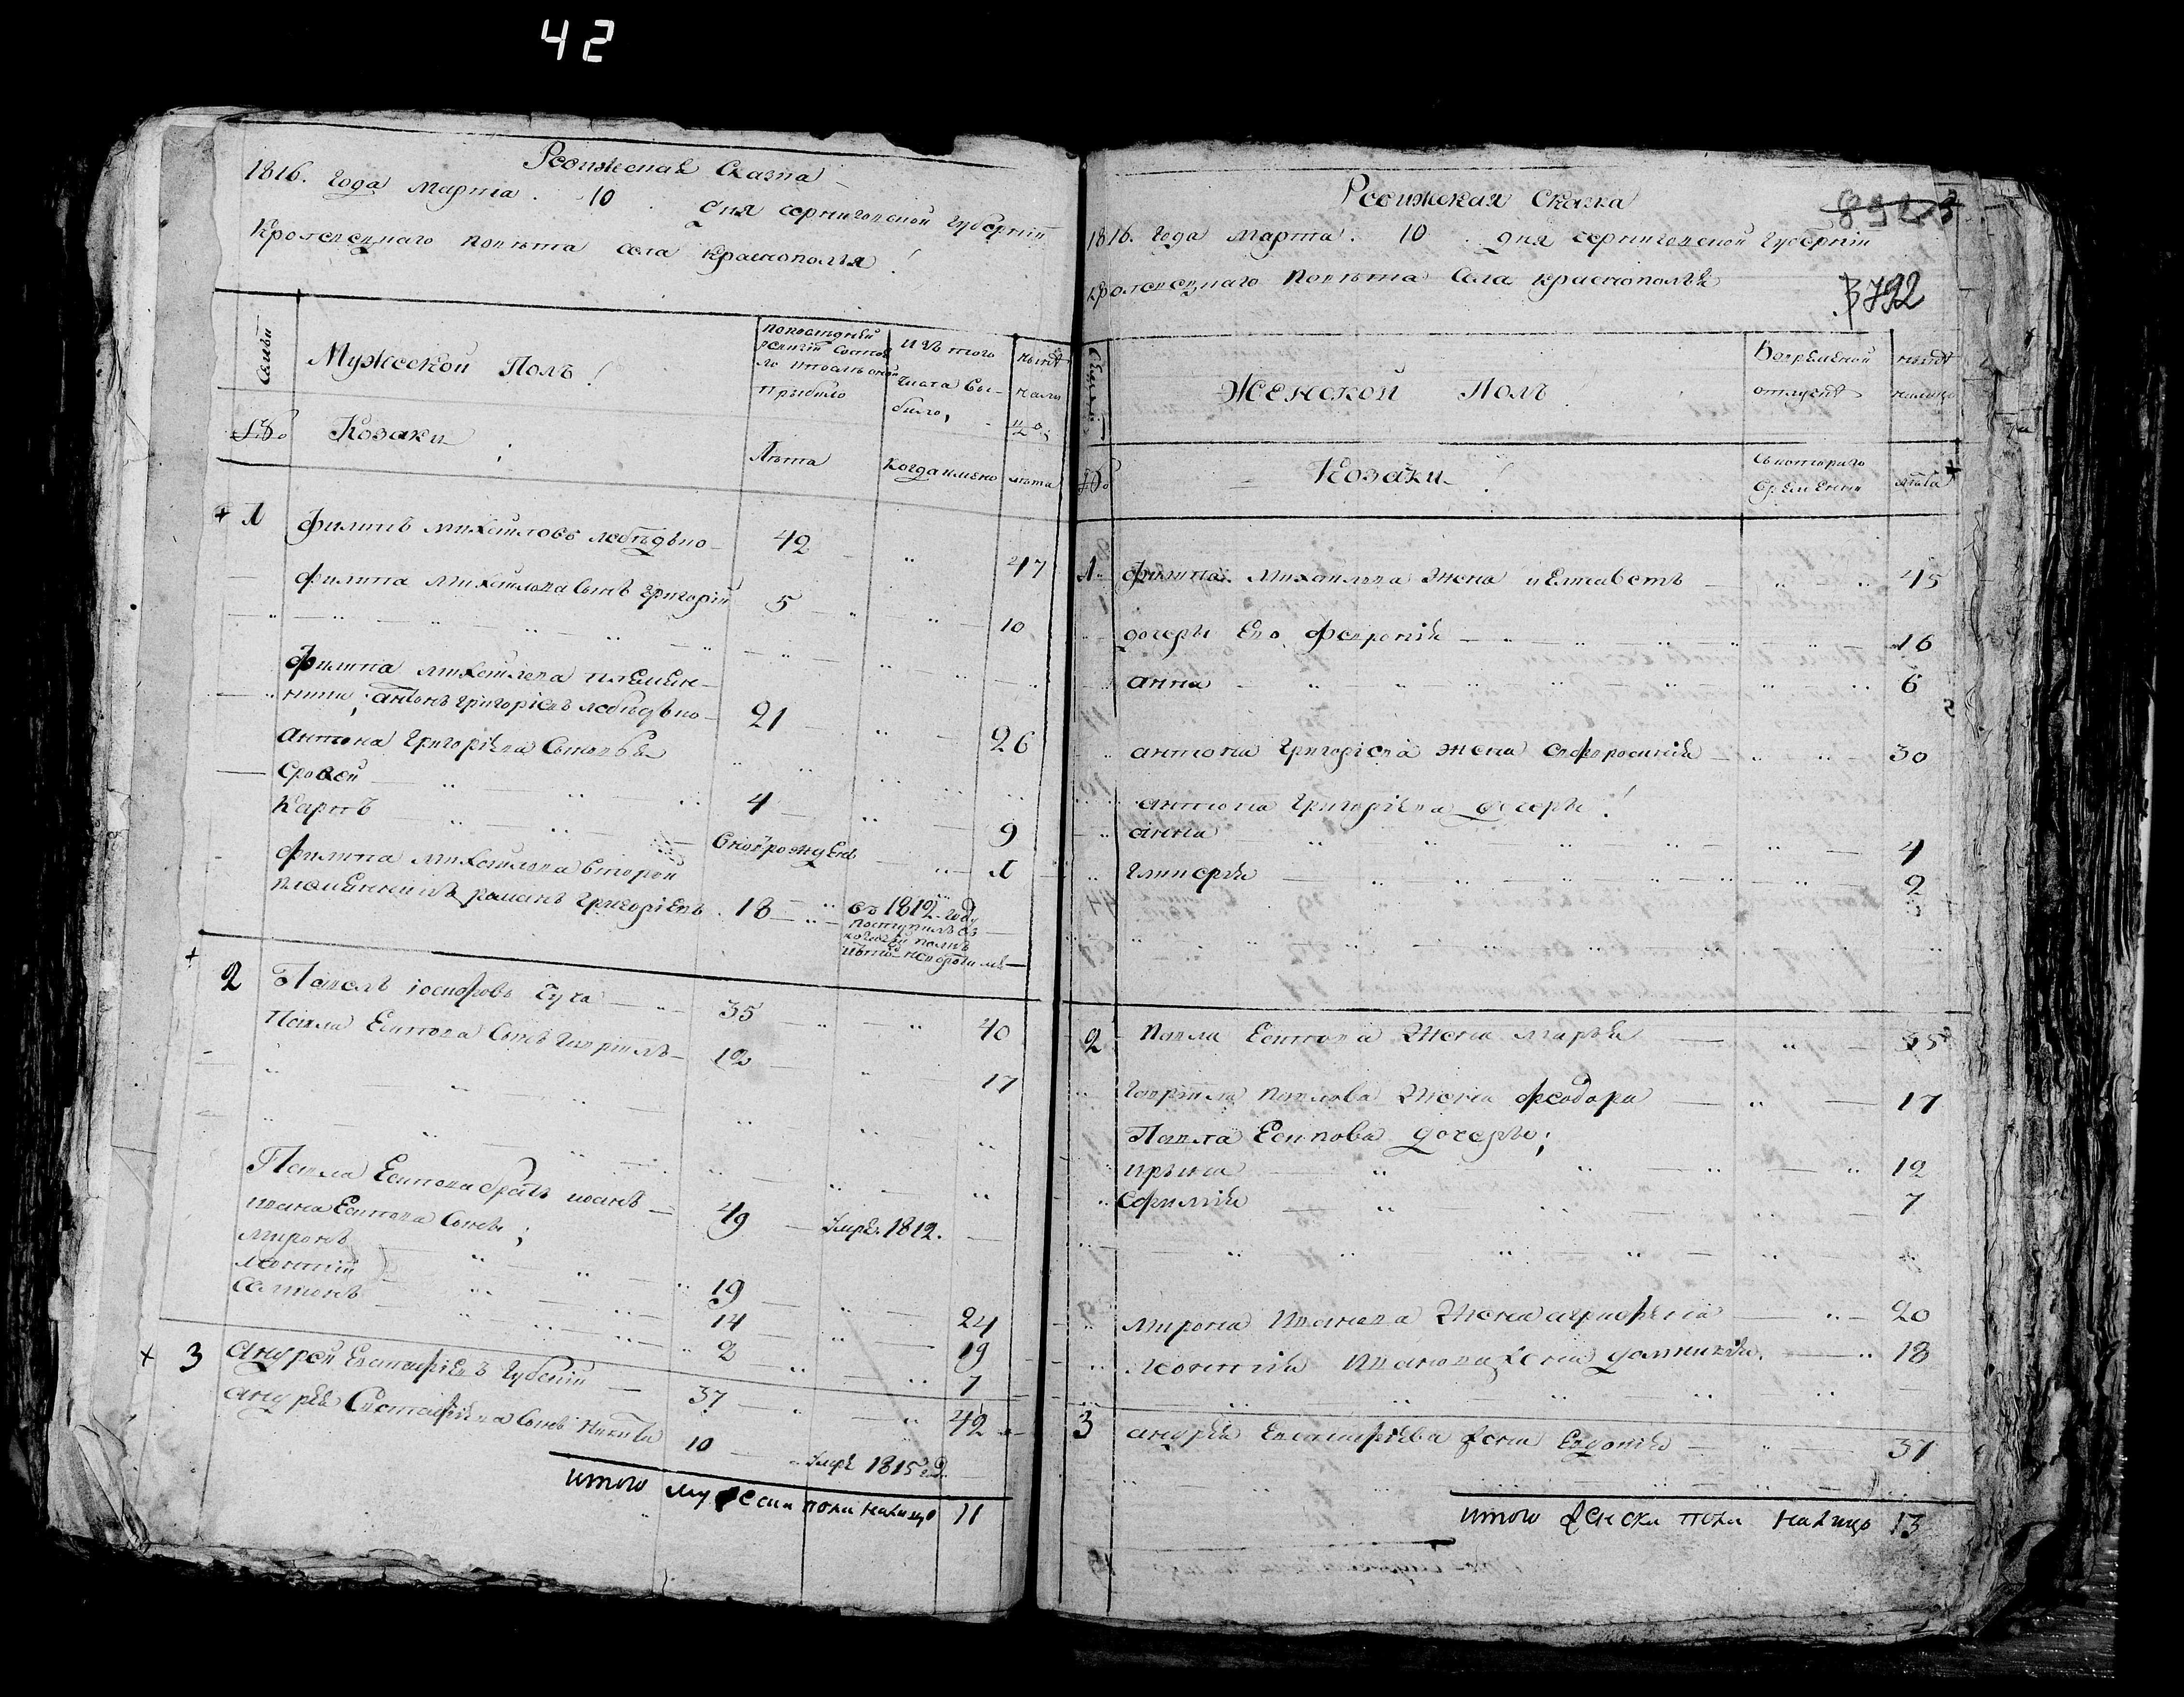 42
Ревижская Сказка
1816. года Марта. 10 дня черниговской губернии
Кролевецкаго повѣта села Краснополья
Семьи
Мужеской Полъ
попоследней ревизїи состояло и после оной прибыло
изъ того числа выбыло,
нынѣ налицо
№
Козаки
Лѣта
Когда имено
лѣта
1 филипъ михайловъ лебедько 42 " 47
филипа михайлова сынъ григорий 5 " 10
филипа михайлова племен-
ники, антонъ григорїевъ лебедько 21 26
антона григорїева сыновья
Ерофей 4 9
Карпъ вновѣрожденъ 1
филипа михайлова второй
племенникъ романъ григорїевъ 18 въ 1812 году
поступилъ въ
козачїй полкъ
2 Павелъ іосифовъ Чуча 35 40
Павла Есипова сынъ гаврїилъ 12 17
Павла Есипова братъ иванъ 49 умре. 1812.
ивана Есипова сынъ;
миронъ 19 24
леонтїй 14 19
антонъ 2 7
3 Андрей Евстафїевъ губскїй 37 42
андрея Евстафїева сынъ Никита 10 умре 1815 год.
итого мужеска пола налицо 11
Ревижская Сказка
8923
1816. года Марта. 10 дня черниговской губернїи
кролевецкаго повѣта села краснополья
792
Семьи
Женской Полъ
Вовременой отлучке
нынѣ налицо
№
Козаки
Съ котораго времении
лѣта
1 филипа михайлова жена иелисаветъ 45
дочери Его феврония 16
анна 6
антона григорїева жена ефросиния 30
антона григорїева дочери
анна 4
гликерїя 2
2 Павла Есипова жена марья 35
гаврїила павлова жена феодора 17
Павла Есипова дочери;
ирына 12
Ефимїя 7
мирона иванова жена агрифена 20
леонтїя иванова жена домникїя 18
3 андрея Евстафїева жена Евдокїя 37
итого женска пола налицо 13